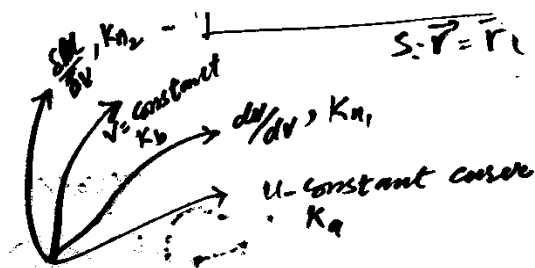 δu/δv, Kn₂
S: r⃗ = r⃗(
v = constant
K_b
du/dv, Kn₁
u-constant curve
K_a